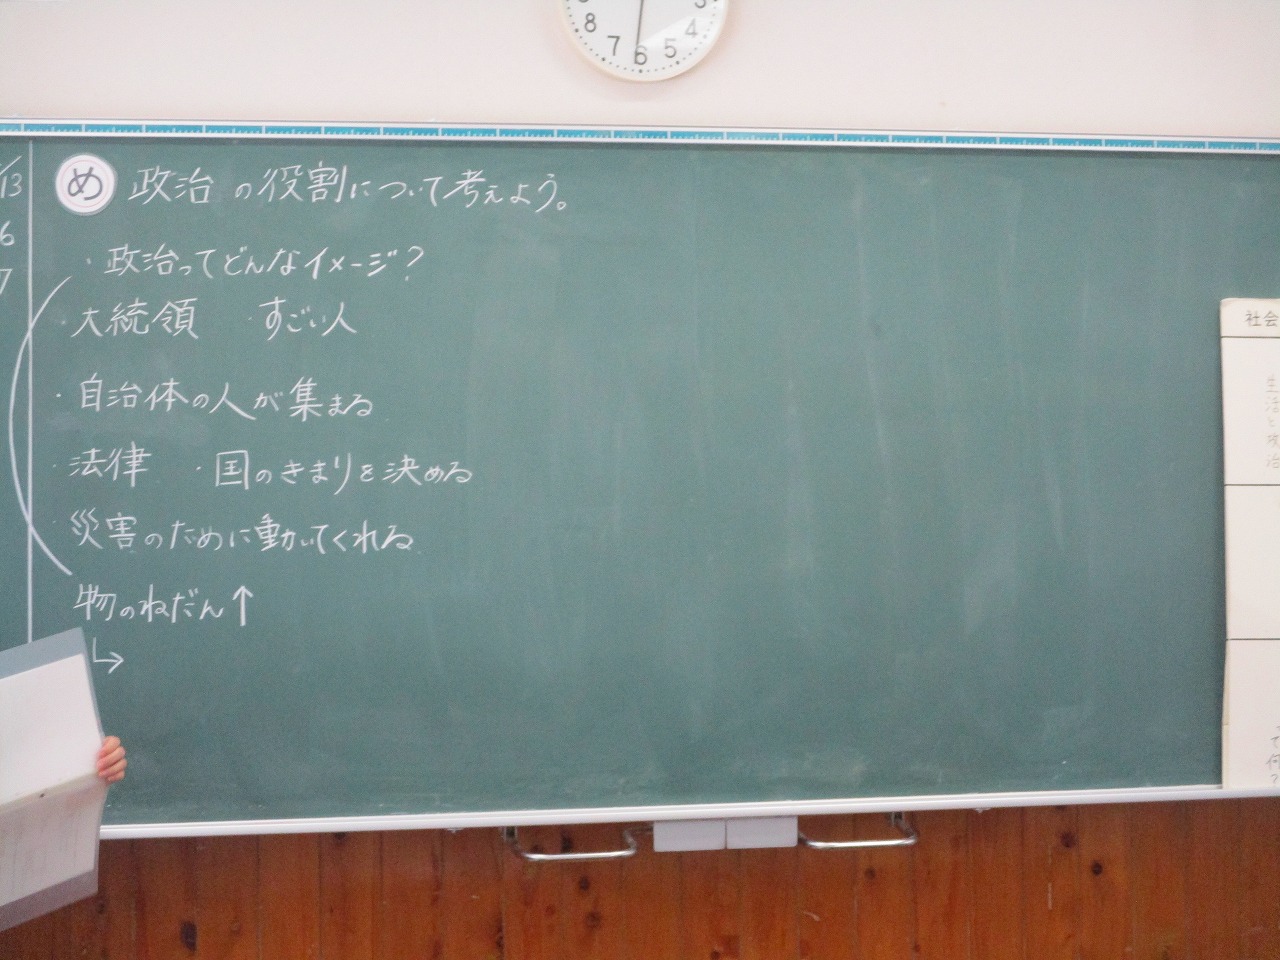 8
7
6
5
4
3
/13
6
7
め 政治の役割について考えよう。
・政治ってどんなイメージ?
・大統領 ・すごい人
・自治体の人が集まる
・法律 ・国のきまりを決める
・災害のために動いてくれる
物のねだん↑
↳
社会
生活と政治
て何?